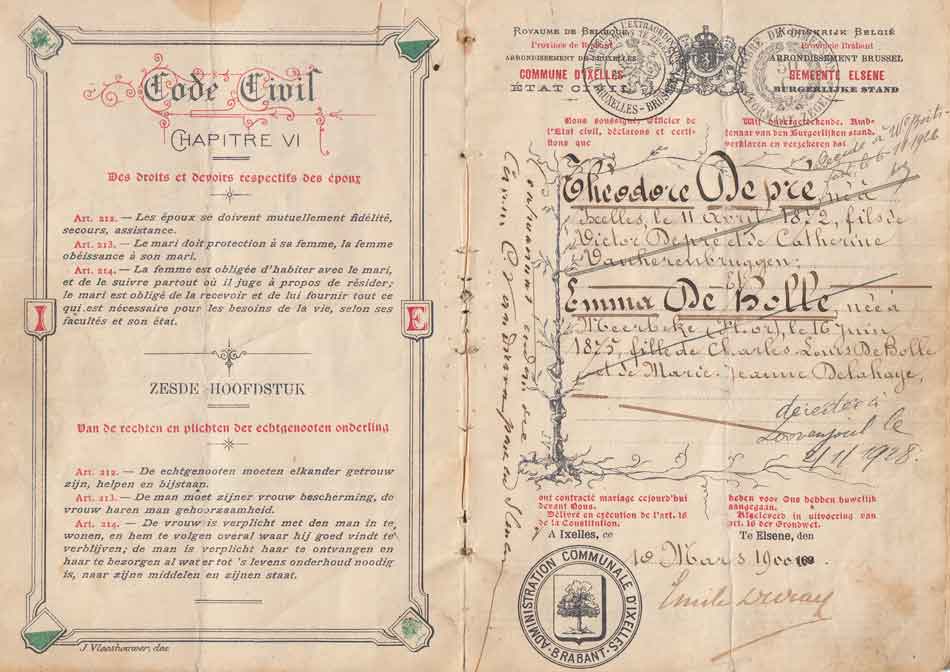 Code Civil
CHAPITRE VI
Des droits et devoirs respectifs des époux
Art. 212. — Les époux se doivent mutuellement fidélité,
secours, assistance.
Art. 213. — Le mari doit protection à sa femme, la femme
obéissance à son mari.
Art. 214. — La femme est obligée d'habiter avec le mari,
et de le suivre partout où il juge à propos de résider;
le mari est obligé de la recevoir et de lui fournir tout ce
qui est nécessaire pour les besoins de la vie, selon ses
facultés et son état.
I E
ZESDE HOOFDSTUK
Van de rechten en plichten der echtgenooten onderling
Art. 212. — De echtgenooten moeten elkander getrouw
zijn, helpen en bijstaan.
Art. 213. — De man moet zijner vrouw bescherming, de
vrouw haren man gehoorzaamheid.
Art. 214. — De vrouw is verplicht met den man in te
wonen, en hem te volgen overal waar hij goed vindt te
verblijven; de man is verplicht haar te ontvangen en
haar te bezorgen al wat er tot 's levens onderhoud noodig
is, naar zijne middelen en zijnen staat.
J. Vleeshouwer, del.
ROYAUME DE BELGIQUE
Province de Brabant
ARRONDISSEMENT DE BRUXELLES
COMMUNE D'IXELLES
ÉTAT CIVIL
KONINKRIJK BELGIË
Provincie Brabant
ARRONDISSEMENT BRUSSEL
GEMEENTE ELSENE
BURGERLIJKE STAND
Nous soussigné, Officier de
l'État civil, déclarons et certi-
fions que
Wij ondergeteekende, Amb-
tenaar van den Burgerlijken stand,
verklaren en verzekeren dat
Théodore Depré, né à
Ixelles, le 11 Avril 1872, fils de
Victor Depré et de Catherine
Vanherenbruggen;
Et
Emma De Bolle, née à
Meerbeke (Fl. or), le 16 Juin
1875, fille de Charles-Louis De Bolle
et de Marie-Jeanne Delahaye,
décédée à
le
4/11 1928.
ont contracté mariage cejourd'hui
devant Nous.
Délivré en exécution de l'art. 16
de la Constitution.
A Ixelles, ce
heden voor Ons hebben huwelijk
aangegaan.
Afgeleverd in uitvoering van
art. 16 der Grondwet.
Te Elsene, den
10 Mars 1900
ADMINISTRATION COMMUNALE D'IXELLES
BRABANT